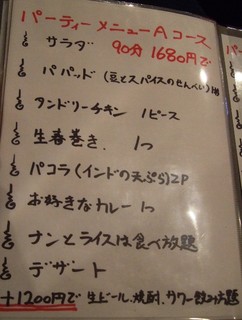 パーティーメニューAコース
サラダ 90分 1680円で
パパッド（豆とスパイスのせんべい）1枚
タンドリーチキン 1ピース
生春巻き、1つ
パコラ（インドの天ぷら）2P
お好きなカレー 1つ
ナンとライスは食べ放題
デザート
+1200円で 生ビール、焼酎、サワー飲み放題